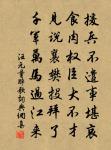 援兵不遣事堪哀
食肉权臣大不才
见说襄樊投拜了
千军万马过江来
汪元量醉歌诗奥纲春